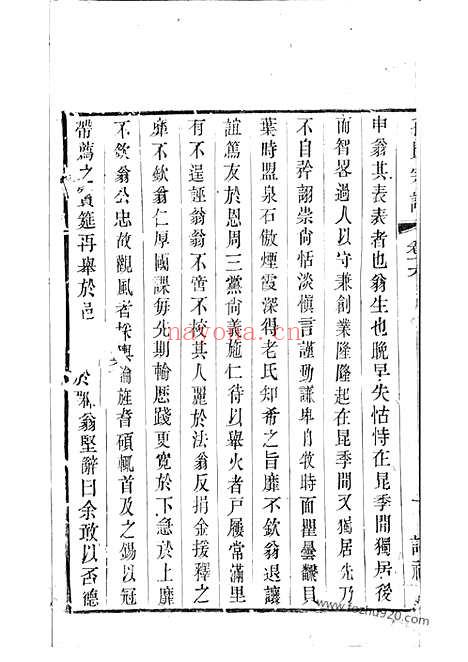 申翁其表表者也翁生也晚早失怙恃在昆季間獨居後
而智畧過人以守兼創業隆隆起在昆季間又獨居先乃
不自矜詡崇尚恬淡慎言謹動謙卑自牧時面瞿曇飜貝
葉時盟泉石傲煙霞深得老氏知希之旨靡不欽翁退讓
誼篤友於恩周三黨尚義施仁待以舉火者戶屨常滿里
有不逞誣翁翁不啻不校其人麗於法翁反捐金援釋之
靡不欽翁仁厚國課每先期輸歷踐更寬於下急於上靡
不欽翁公忠故觀風者採輿論旌耆碩輒首及之錫以冠
帶薦之賓筵再舉於邑 於郡翁堅辭曰余敢以否德
卷六
nayona.cn
www.fozhu920.com